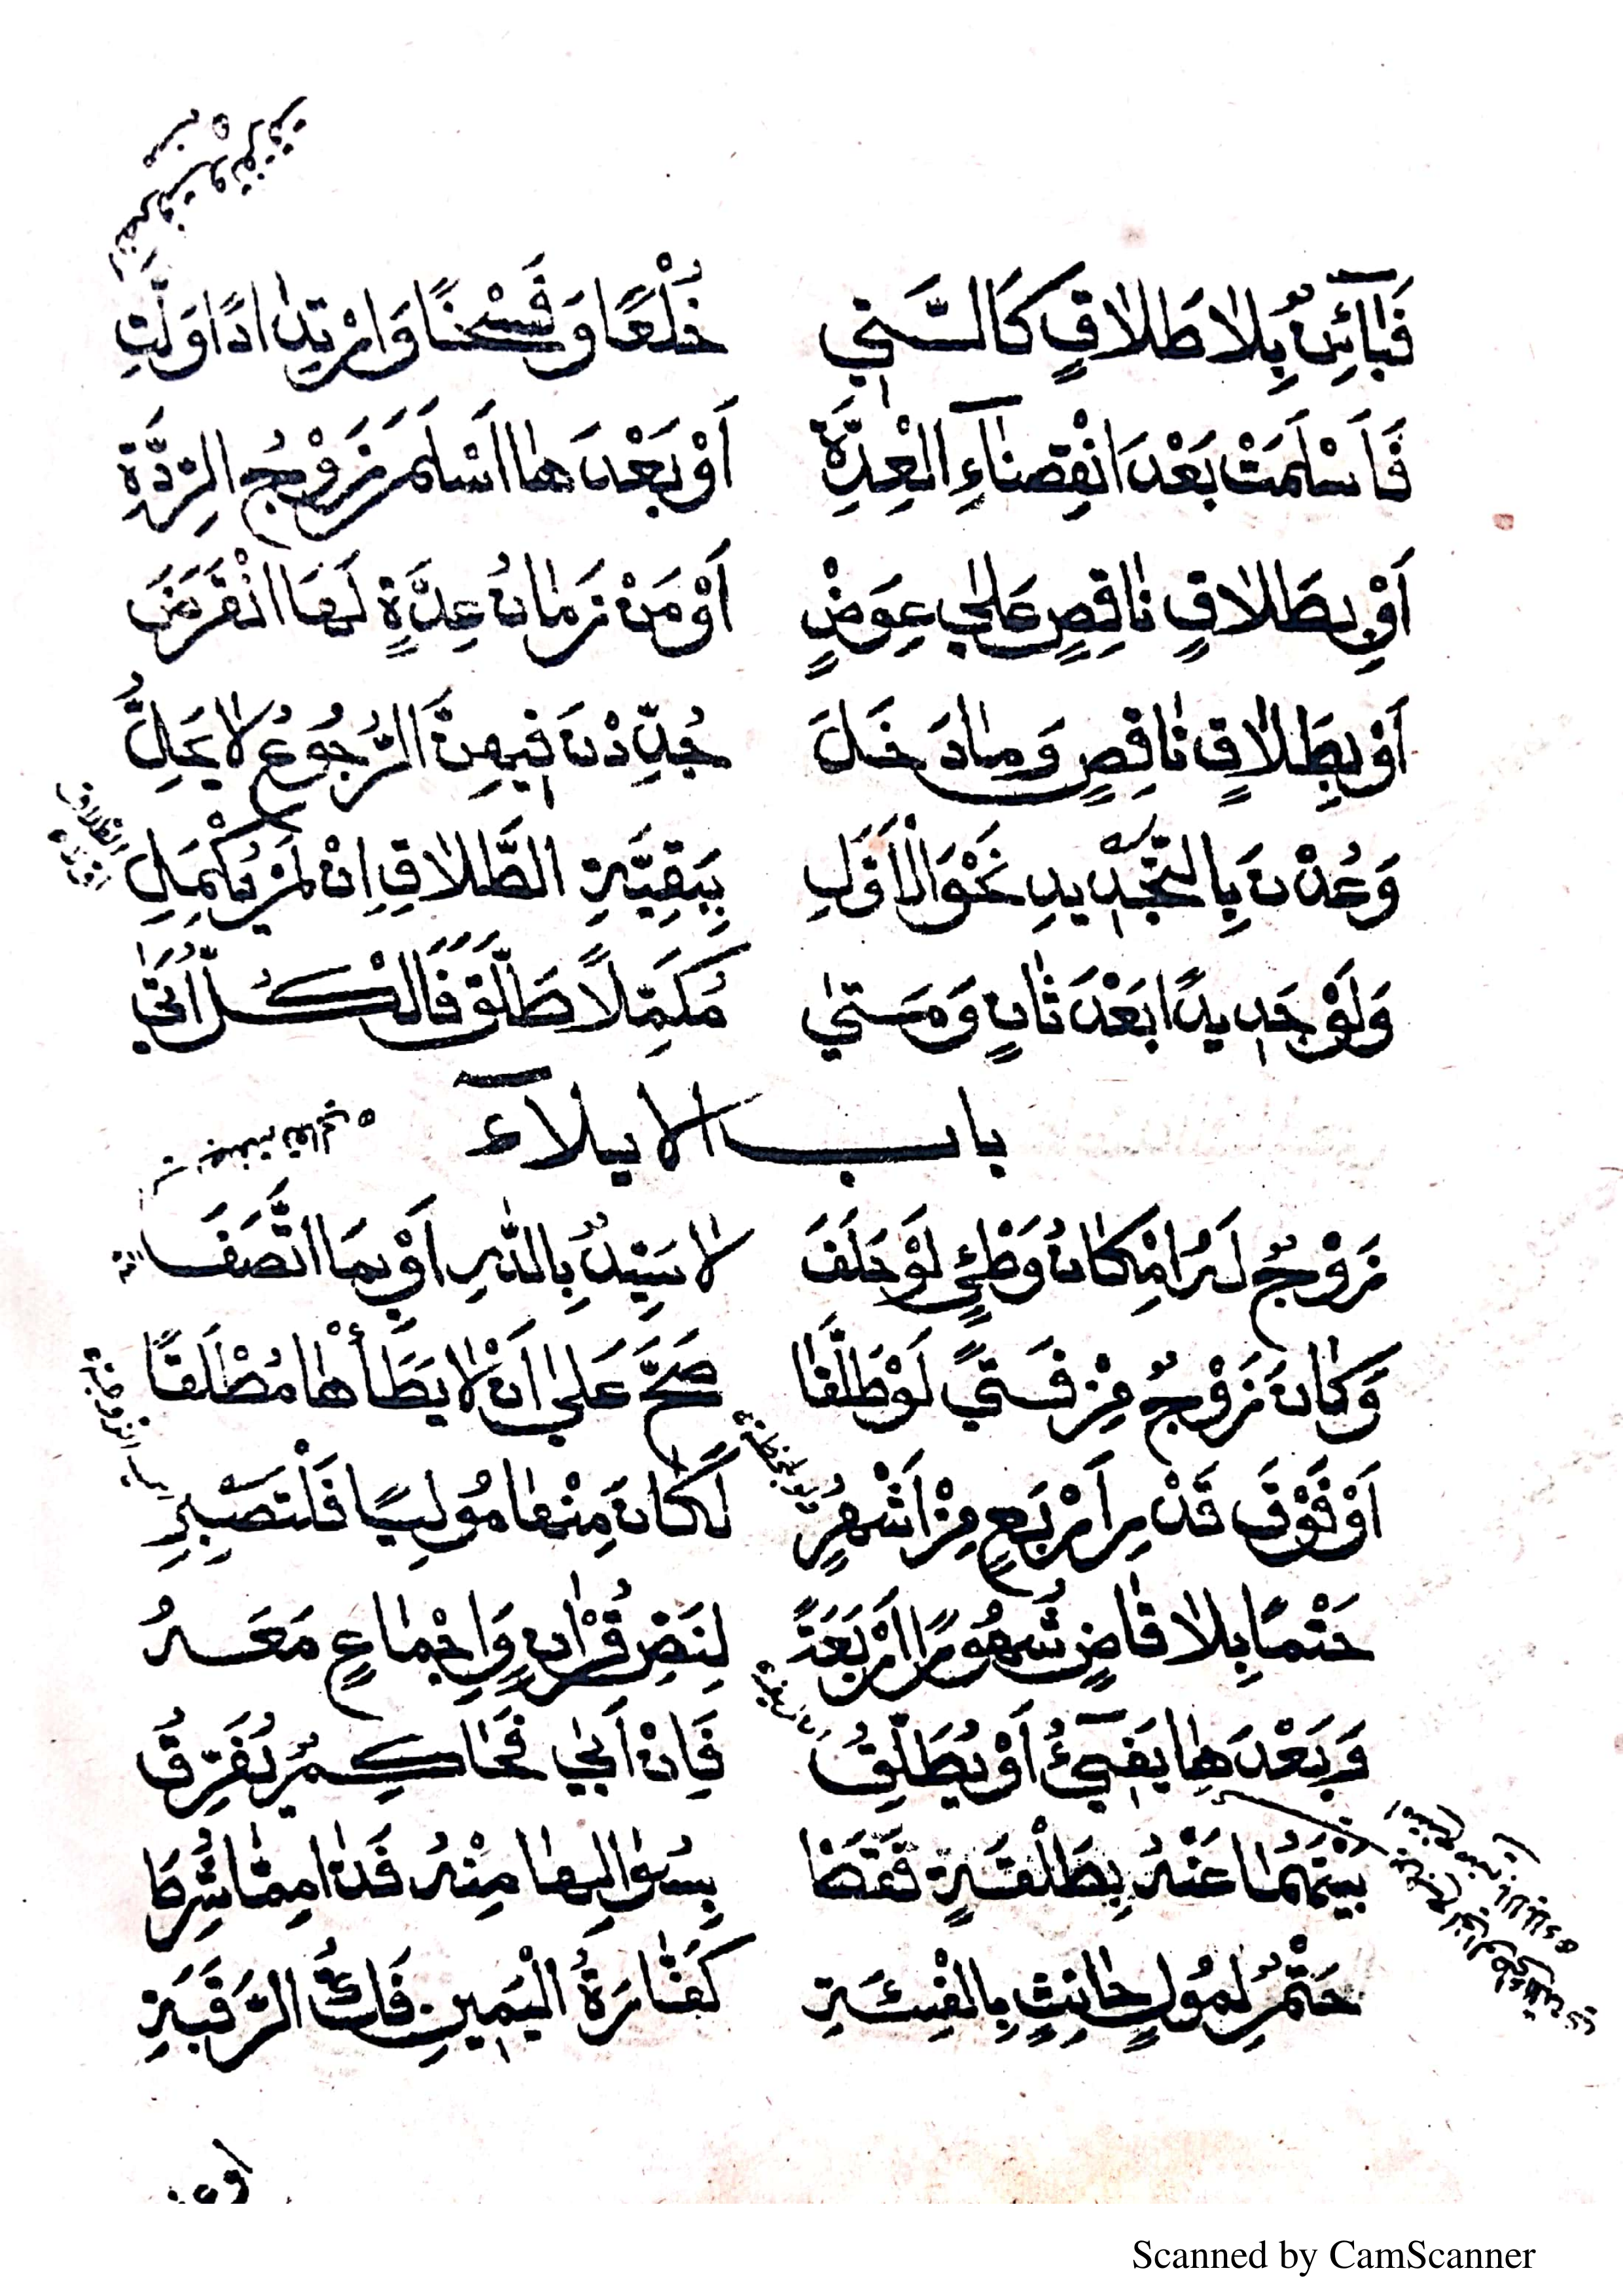 فَبَائِنٌ بِلَا طَلَاقٍ كَالَّتِي خُلْعًا وَفَسْخًا وَارْتِدَادًا وَلَّتِ
فَأَسْلَمَتْ بَعْدَ انْقِضَاءِ الْعِدَّةِ أَوْ بَعْدَهَا أَسْلَمَ زَوْجُ الرِّدَّةِ
أَوْ بِطَلَاقٍ نَاقِصٍ عَلَى عِوَضٍ أَوْ مَنْ زَمَانُ عِدَّةٍ لَهَا انْقَرَضَ
أَوْ بِطَلَاقٍ نَاقِصٍ وَمَا دَخَلَ جُدِّدْنَ فِيهِنَّ الرُّجُوعُ لَا يَحِلُّ
وَعُدْنَ بِالتَّجْدِيدِ نَحْوَ الْأَوَّلِ بِبَقِيَّةِ الطَّلَاقِ إِنْ لَمْ يُكْمِلِ
وَلَوْ جَدِيدًا بَعْدَ ثَانٍ وَمَتَى مُكَمِّلًا طَلَّقَ فَالْكُلُّ أَتَى
باب الايلآء
زَوْجٌ لَهُ امْكَانُ وَطْئٍ لَوْ حَلَفَ لَا سَيِّدٌ بِاللّٰهِ أَوْ بِمَا اتَّصَفَ
وَكَانَ زَوْجٌ مِنْ فَتًى لَوْ طَلَّقَا صَحَّ عَلَى أَنْ لَا يَطَأْهَا مُطْلَقًا
أَوْ فَوْقَ قَدْرِ أَرْبَعٍ مِنْ أَشْهُرٍ لَكَانَ مِنْهَا مُولِيًا فَلْتَصْبِرِ
حَتْمًا بِلَا قَاضٍ شُهُورًا أَرْبَعَةً لِنَصِّ قُرْآنٍ وَإِجْمَاعٍ مَعَهُ
وَبَعْدَهَا يَفِيئُ أَوْ يُطَلِّقُ فَإِنْ أَبَى فَحَاكِمٌ يُفَرِّقُ
بَيْنَهُمَا عَنْهُ بِطَلْقَةٍ فَقَطْ بِسُؤَالِهَا مِنْهُ فَذَا مِمَّا شُرِطَا
حَتْمٌ لِمُولٍ حَانِثٍ بِالْفِئَةِ كَفَّارَةُ الْيَمِينِ فَكُّ الرَّقَبَةِ
Scanned by CamScanner